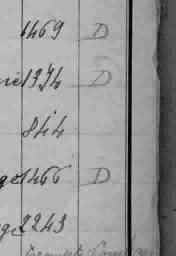 1469 D
1374 D
844
ge 1466 D
ge 2243